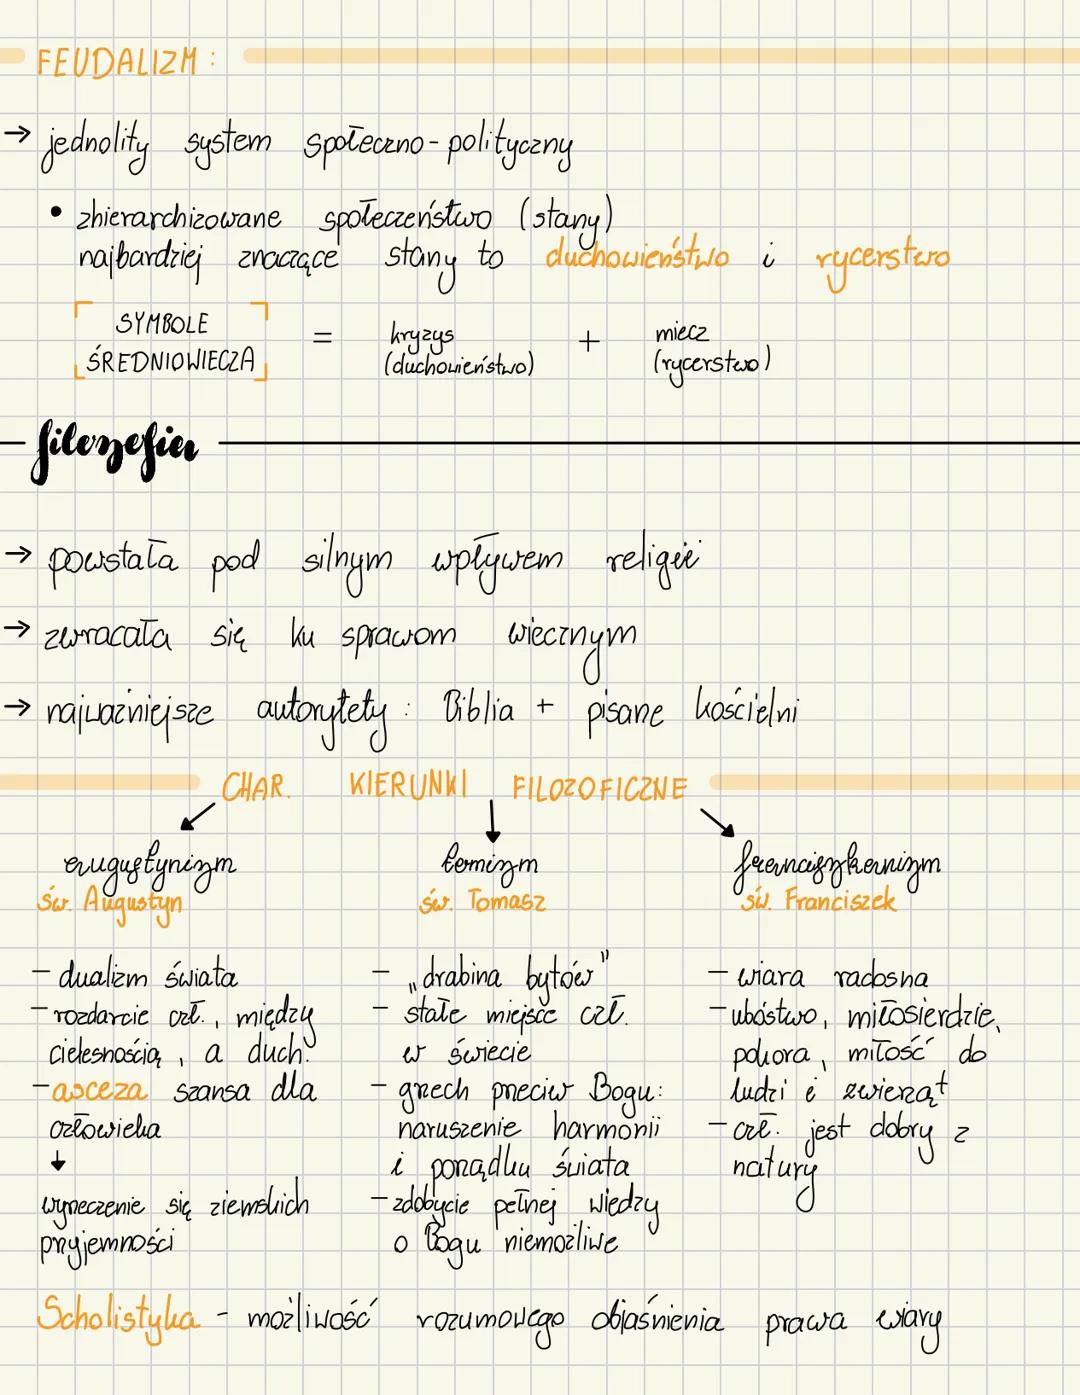 FEUDALIZM :
→ jednolity system społeczno-polityczny
• zhierarchizowane społeczeństwo (stany)
najbardziej znaczące stany to duchowieństwo i rycerstwo
SYMBOLE ŚREDNIOWIECZA = kryzys (duchowieństwo) + miecz (rycerstwo)
filozofia
→ powstała pod silnym wpływem religii
→ zwracała się ku sprawom wiecznym
→ najważniejsze autorytety : Biblia + pisane kościelni
CHAR. KIERUNKI FILOZOFICZNE
augustynizm
św. Augustyn
- dualizm świata
- rozdarcie czł., między
cielesnością, a duch.
- asceza szansa dla
człowieka
↓
wyrzeczenie się ziemskich
przyjemności
tomizm
św. Tomasz
- „drabina bytów"
- stałe miejsce czł.
w świecie
- grzech przeciw Bogu:
naruszenie harmonii
i porządku świata
- zdobycie pełnej wiedzy
o Bogu niemożliwe
franciszkanizm
św. Franciszek
- wiara radosna
- ubóstwo, miłosierdzie,
pokora, miłość do
ludzi i zwierząt
- czł. jest dobry z
natury
Scholistyka - możliwość rozumowego objaśnienia prawa wiary